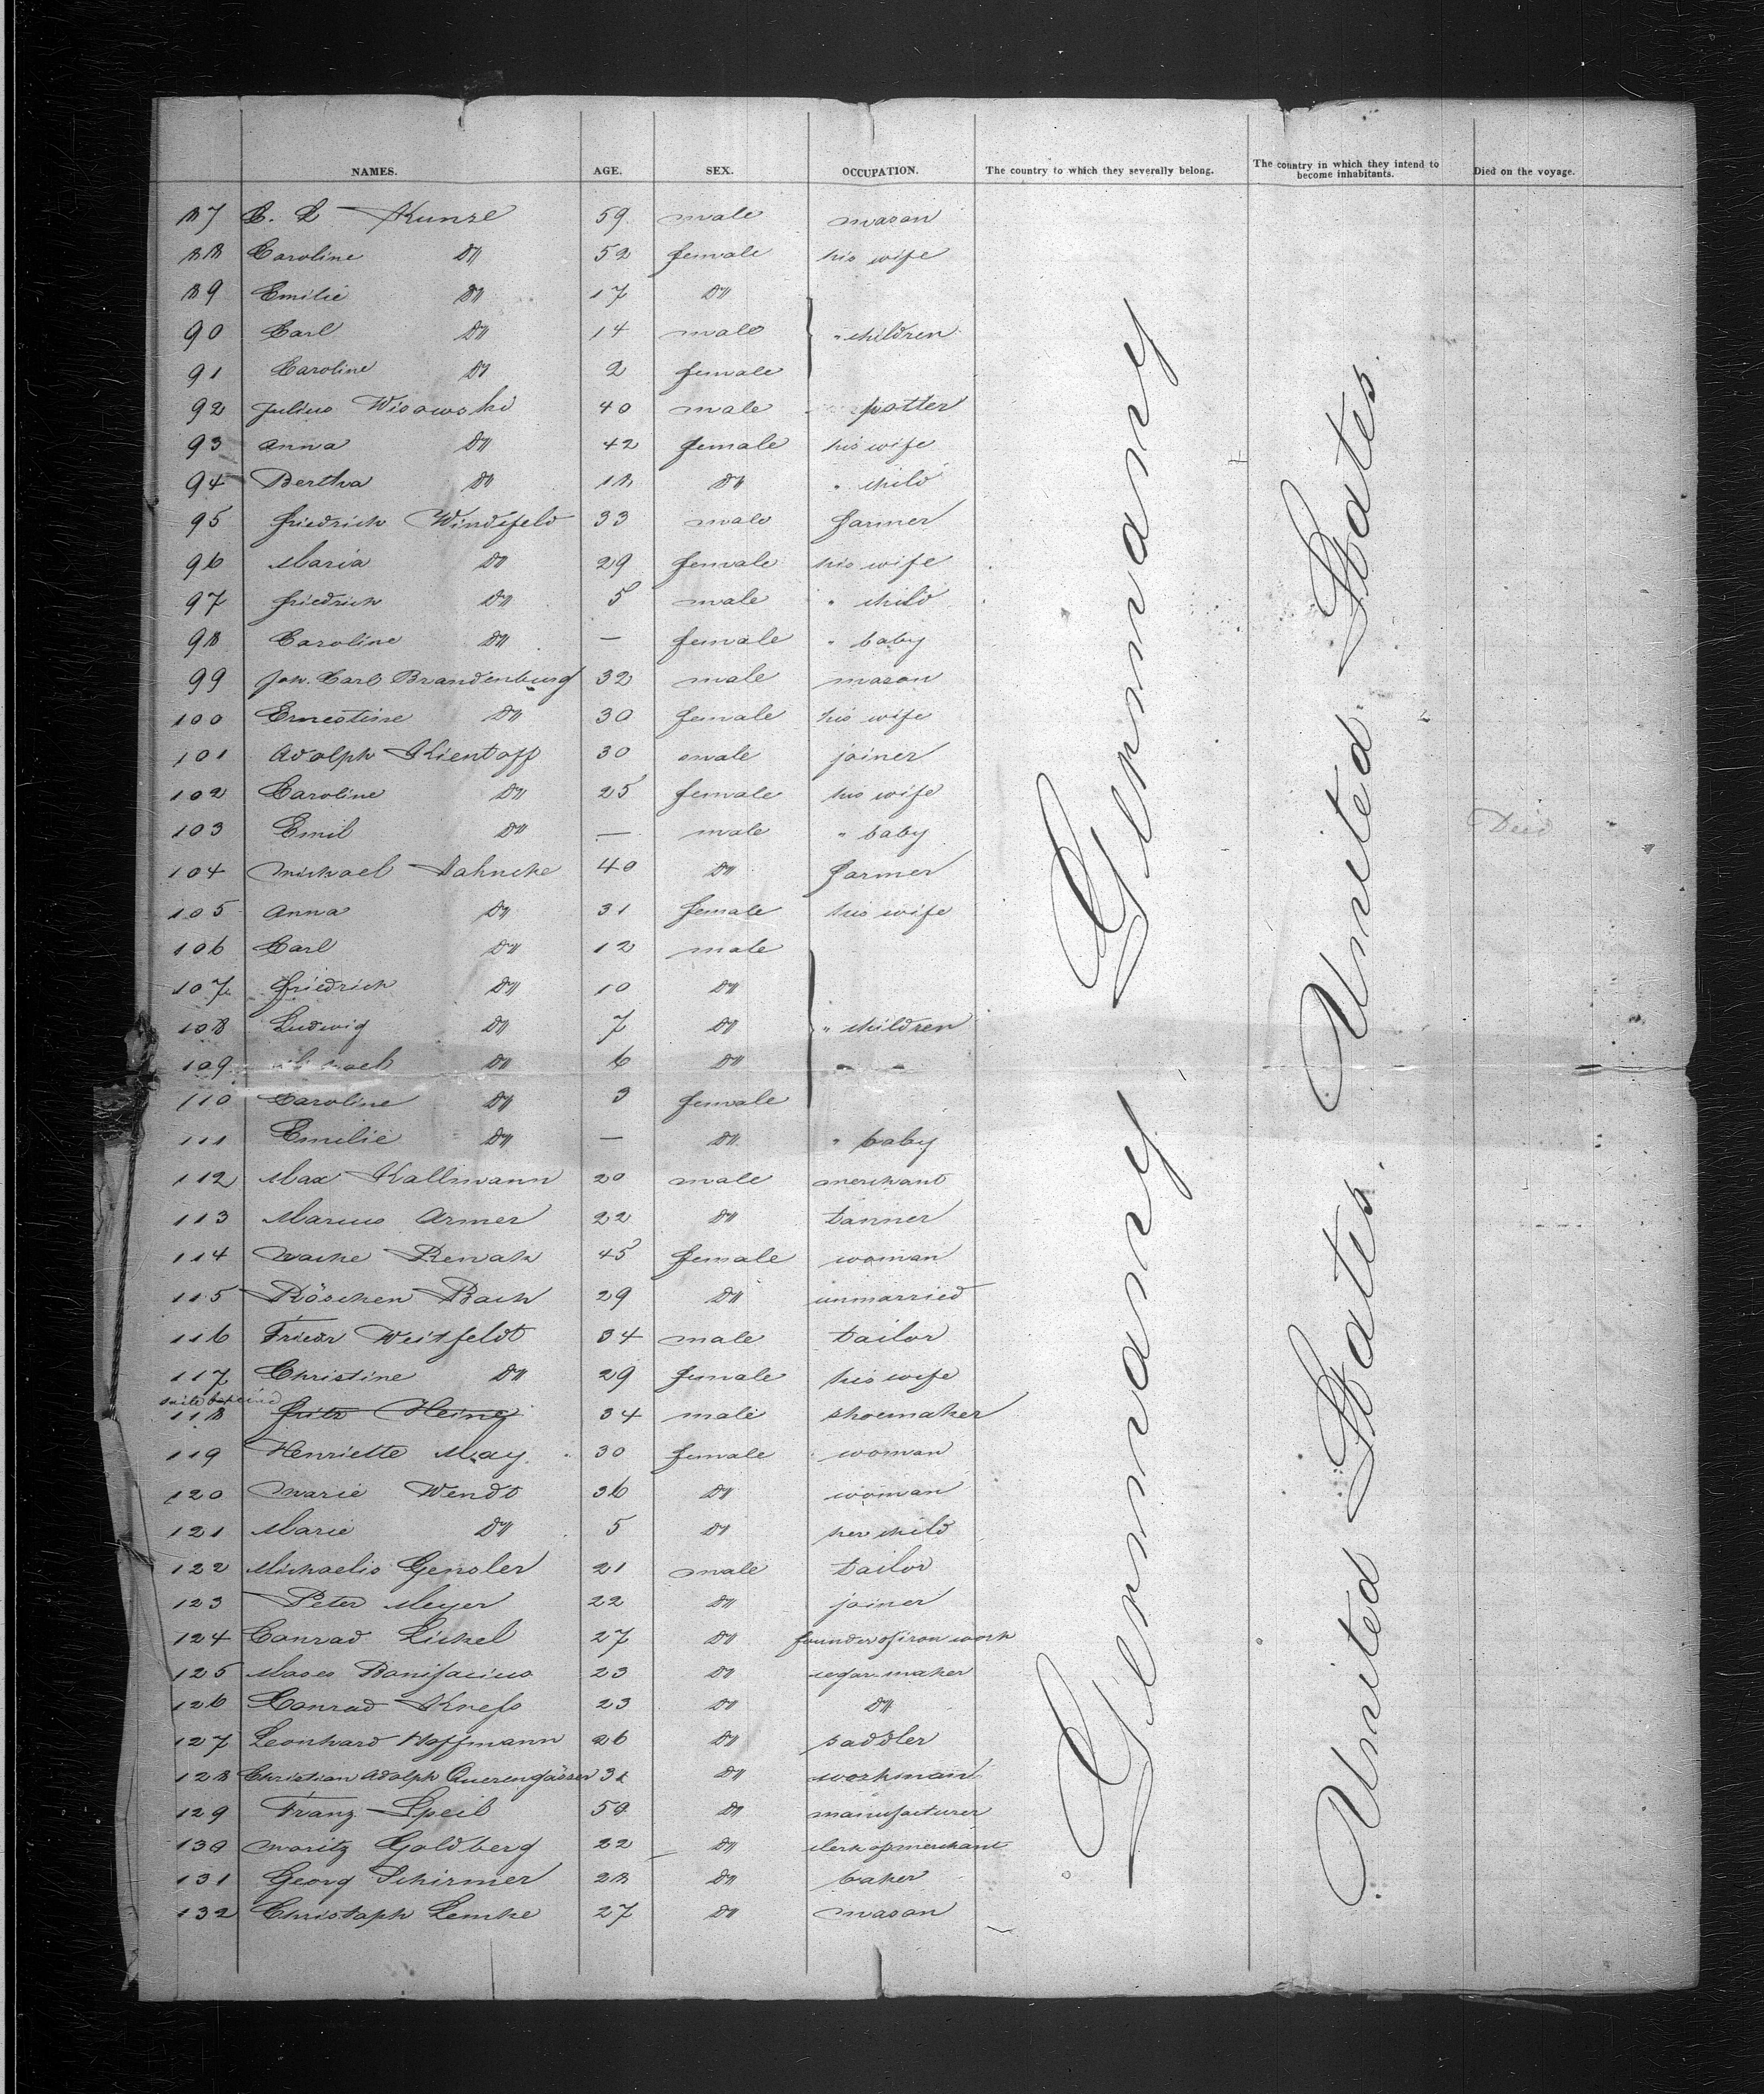 NAMES. AGE. SEX. OCCUPATION. The country to which they severally belong. The country in which they intend to become inhabitants. Died on the voyage.
87 C. L Kunze 59 male mason
88 Caroline Do 52 female his wife
89 Emilie Do 17 Do
90 Carl Do 14 male " children
91 Caroline Do 2 female
92 Julius Wisowski 40 male potter
93 Anna Do 42 female his wife
94 Bertha Do 18 Do " child
95 Friedrich Windsfeld 33 male farmer
96 Maria Do 29 female his wife
97 Friedrich Do 5 male " child
98 Caroline Do — female " baby
99 Joh. Carl Brandenburg 32 male mason
100 Ernestine Do 30 female his wife
101 Adolph Klentoff 30 male joiner
102 Caroline Do 25 female his wife
103 Emil Do — male " baby Died
104 Michael Jahncke 40 Do farmer
105 Anna Do 31 female his wife
106 Carl Do 12 male
107 Friedrich Do 10 Do
108 Ludwig Do 7 Do " children
109 Do 6 Do
110 Caroline Do 3 female
111 Emilie Do — Do " baby
112 Max Kallmann 20 male merchant
113 Marcus Armer 22 Do tanner
114 45 female woman
115 Röschen Bach 29 Do unmarried
116 Friedr Weitfeldt 34 male tailor
117 Christine Do 29 female his wife
118 Fritz Heing 34 male shoemaker
119 Henriette May. 30 female woman
120 Marie Wendt 36 Do woman
121 Marie Do 5 Do her child
122 Michaelis Gensler 21 male tailor
123 Peter Meyer 22 Do joiner
124 Conrad Lickel 27 Do founder of iron work
125 Moses Bonifacius 23 Do segar maker
126 Conrad Kness 23 Do Do
127 Leonhard Hoffmann 26 Do saddler
128 Christian Adolph Querengässer 31 Do workman
129 Franz Speil 50 Do manufacturer
130 Moritz Goldberg 22 Do clerk of merchant
131 Georg Schirmer 28 Do baker
132 Christoph Lemke 27 Do mason
Germany Germany
United States. United States.